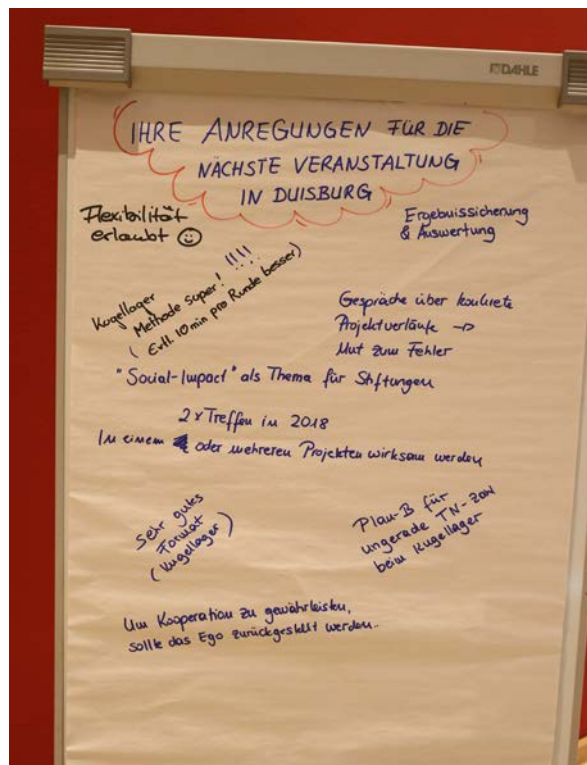 DAHLE
IHRE ANREGUNGEN FÜR DIE
NÄCHSTE VERANSTALTUNG
IN DUISBURG
Flexibilität
erlaubt ☺
Ergebnissicherung
& Auswertung
Kugellager
Methode super! !!!!
(Evtl. 10 min pro Runde besser)
Gespräche über konkrete
Projektverläufe →
Mut zum Fehler
"Social-Impact" als Thema für Stiftungen
2x Treffen in 2018
In einem oder mehreren Projekten wirksam werden
Sehr gutes
Format
(Kugellager)
Plan-B für
ungerade TN-Zahl
beim Kugellager
Um Kooperation zu gewährleisten,
sollte das Ego zurückgestellt werden..